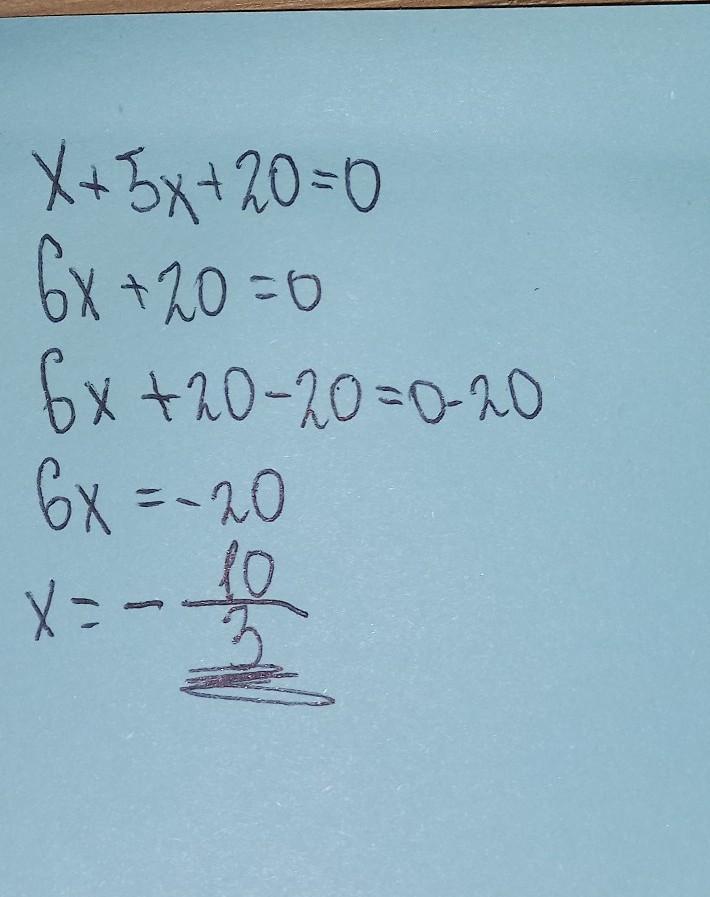 x+5x+20=0
6x+20=0
6x+20-20=0-20
6x=-20
x=-10/3